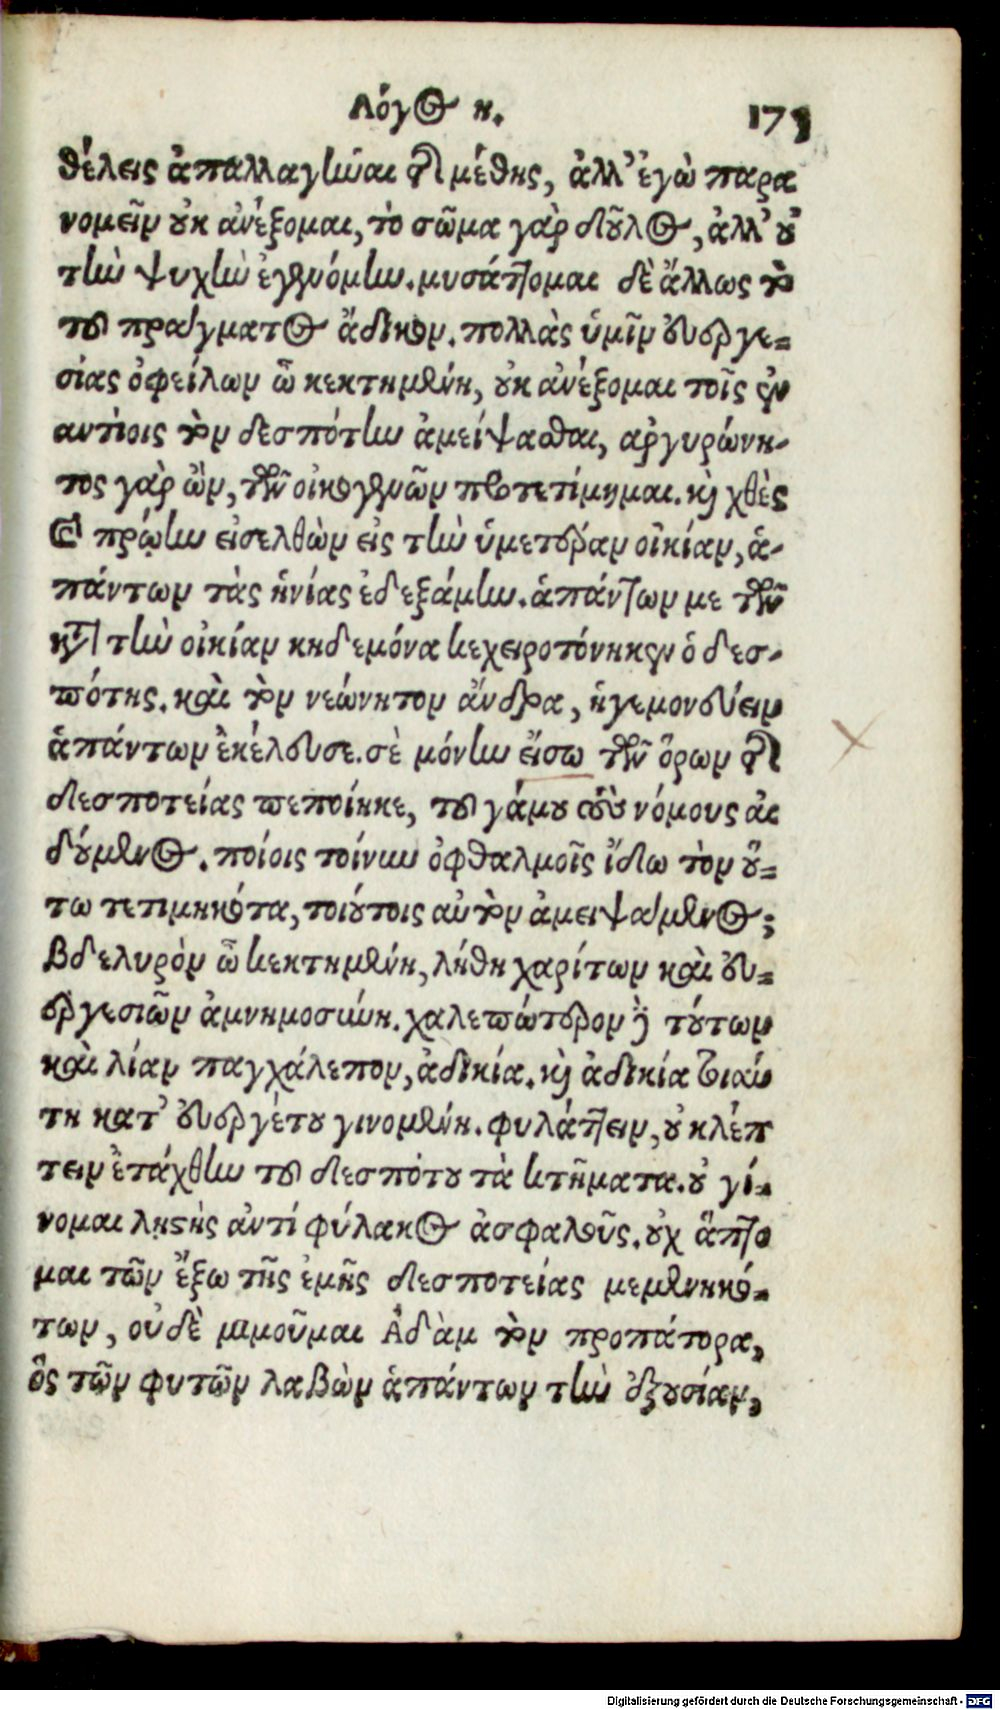 Λόγος η. 175
θέλεις ἀπαλλαγῆναι τῆς μέθης, ἀλλ' ἐγὼ παρα
νομεῖν οὐκ ἀνέξομαι, τὸ σῶμα γὰρ δοῦλος, ἀλλ' οὐ
τὴν ψυχὴν ἐγενόμην. μυσάττομαι δὲ ἄλλως τὸ
τοῦ πράγματος ἄδικον. πολλὰς ὑμῖν εὐεργε-
σίας ὀφείλων ὦ κεκτημένη, οὐκ ἀνέξομαι τοῖς ἐν
αντίοις τὸν δεσπότην ἀμείψασθαι, αργυρώνη-
τος γὰρ ὢν, τῶν οἰκογενῶν προτετίμημαι. καὶ χθὲς
καὶ πρώην εἰσελθὼν εἰς τὴν ὑμετέραν οἰκίαν, ἁ-
πάντων τὰς ἡνίας ἐδεξάμην. ἁπάντων με τῶν
κατὰ τὴν οἰκίαν κηδεμόνα κεχειροτόνηκεν ὁ δεσ-
πότης. καὶ τὸν νεώνητον ἄνδρα, ἡγεμονεύειν
ἁπάντων ἐκέλευσε. σὲ μόνην εἴσω τῶν ὅρων τῆς
δεσποτείας πεποίηκε, τοῦ γάμου τοὺς νόμους αἰ
δούμενος. ποίοις τοίνυν ὀφθαλμοῖς ἴδω τὸν οὕ-
τω τετιμηκότα, τοιούτοις αὐτὸν ἀμειψάμενος;
Βδελυρὸν ὦ κεκτημένη, λήθη χαρίτων καὶ εὐ-
εργεσιῶν ἀμνημοσύνη. χαλεπώτερον δὲ τούτων
καὶ λίαν παγχάλεπον, ἀδικία. καὶ ἀδικία τοιαύ
τη κατ' εὐεργέτου γινομένη. φυλάττειν, οὐ κλέπ
τειν ἐτάχθην τοῦ δεσπότου τὰ κτήματα. οὐ γί-
νομαι λῃστὴς ἀντί φύλακος ἀσφαλοῦς. οὐχ ἅπτο
μαι τῶν ἔξω τῆς ἐμῆς δεσποτείας μεμενηκό-
των, οὐδὲ μιμοῦμαι Ἀδὰμ τὸν προπάτορα,
ὃς τῶν φυτῶν λαβὼν ἁπάντων τὴν ἐξουσίαν,
Digitalisierung gefördert durch die Deutsche Forschungsgemeinschaft - DFG